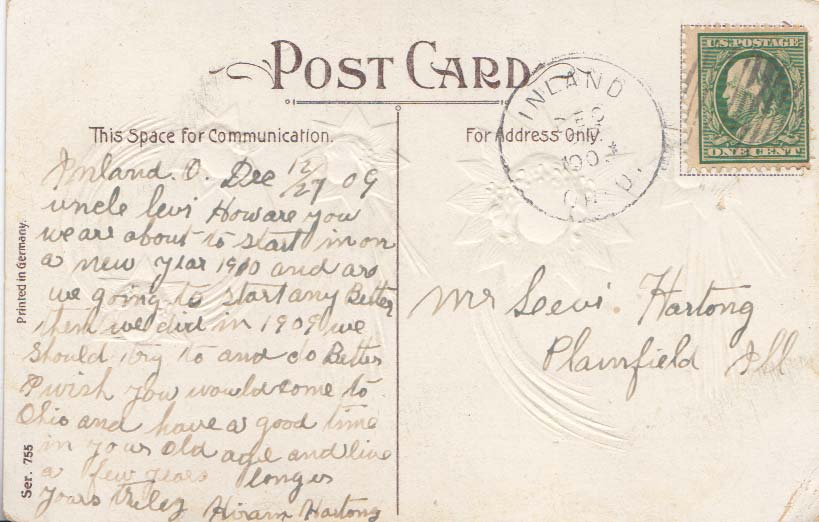 POST CARD
This Space for Communication.
For Address Only.
U.S. POSTAGE
ONE CENT
INLAND
DEC
190
OHIO.
Inland. O. Dec 12/27 09
uncle levi How are you
we are about to start in on
a new year 1910 and are
we going to start any Better
then we did in 1909 we
should try to and do Better
I wish you would come to
Ohio and have a good time
in your old age and live
a few years longer
yours truley Hiram Hartong
Mr Leevi. Hartong
Plainfield Ill
Printed in Germany.
Ser. 755